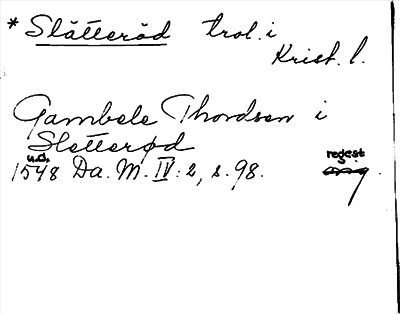 * Slätteröd trol. i
Krist. l.
Gambele Thordsen i
Sletterød
u.d. regest
1548 Da. M. IV: 2, s. 98. orig.